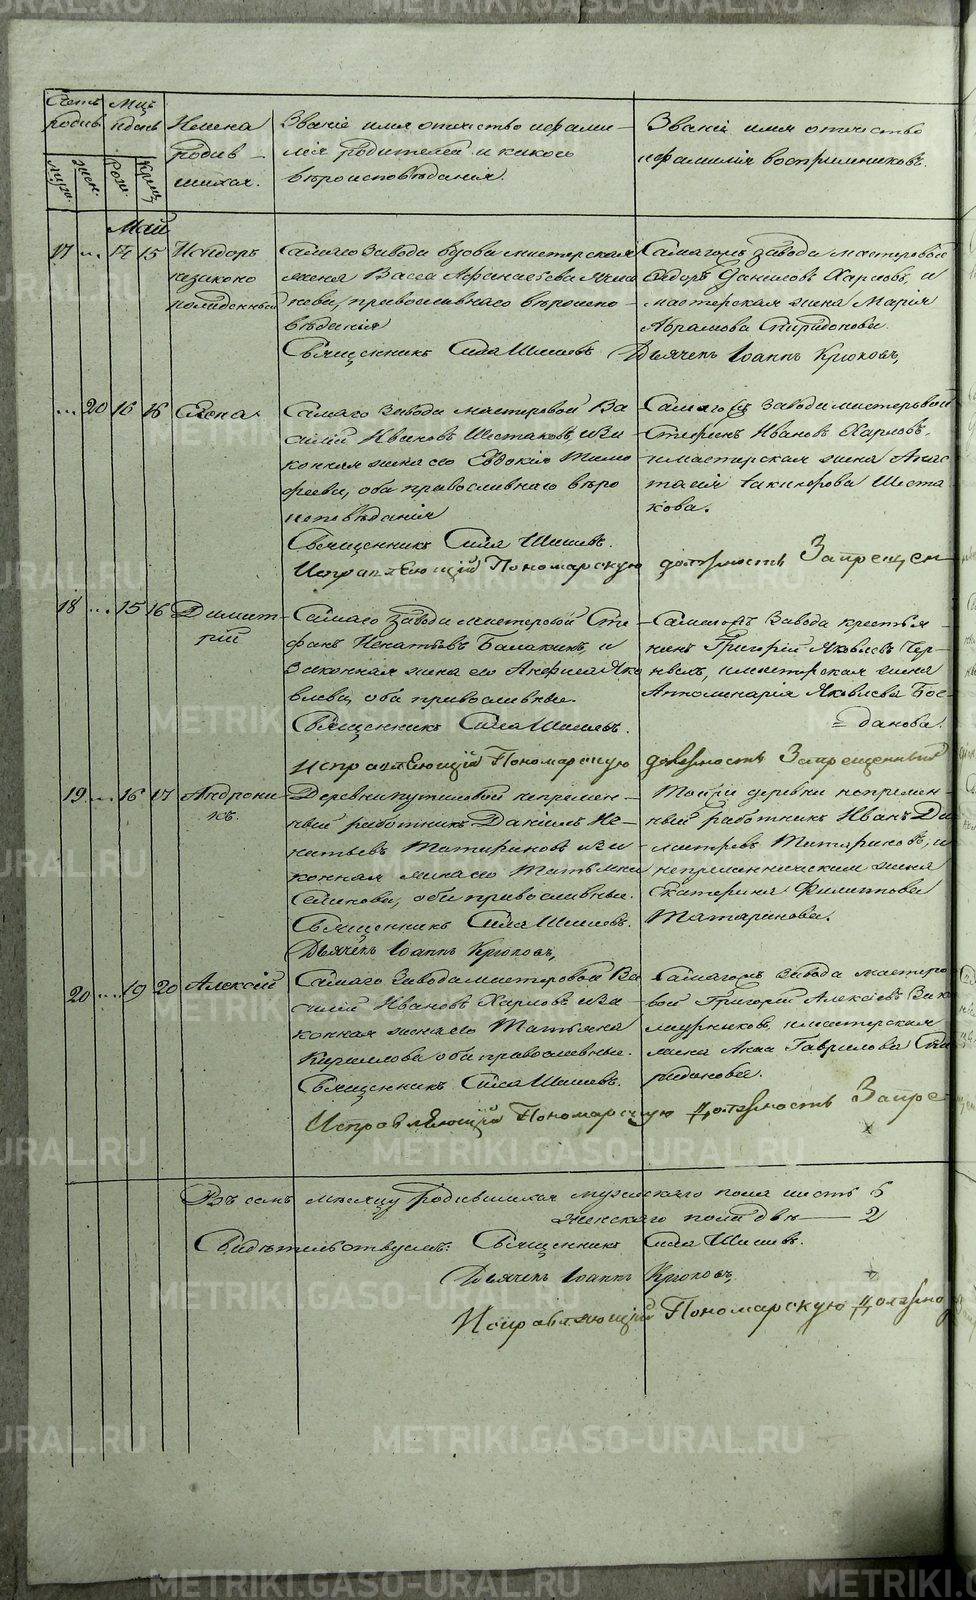 METRIKI.GASO-URAL.RU
Счетъ родив Мцъ и день Имена родив-шихся. Званіе имя отечество и фами-лія родителей и какого вѣроисповѣданія. Званіе имя отечество и фамилія воспріемниковъ.
муж. жен. Рож. Крещ.
Май
17 ... 14 15 Исидоръ незаконо рожденный
Самаго завода вдова мастерская
жена Васса Афанасьева
православнаго вѣроиспо-
вѣданія
Священникъ Сила Шишевъ Дьячекъ Іоаннъ Крюковъ,
Самагожъ завода мастеровой
Ѳедоръ Даниловъ Харловъ, и
мастерская жена Марія
Абрамова Спиридонова.
... 20 16 16 Елена.
Самаго завода мастеровой Ва-
силій Ивановъ Шестаковъ, и за-
конная жена его Евдокія Тимо
феева, оба православнаго вѣро
исповѣданія
Священникъ Сила Шишевъ.
Исправляющій Пономарскую должность Запрещен
Самагожъ завода мастеровой
Стефанъ Ивановъ Харловъ,
и мастерская жена Анас
тасія Іакинфова Шеста
кова.
18 ... 15 16 Димит-рій
Самаго завода мастеровой Сте
фанъ Игнатьевъ Балакинъ, и
законная жена его Анфиса Яко
влева, оба православные.
Священникъ Сила Шишевъ.
Исправляющій Пономарскую должность Запрещенный
Самагожъ завода крестья-
нинъ Григорій Яковлевъ
и мастерская жена
Апполинарія Яковлева Бог-
данова.
19 ... 16 17 Андрони-къ.
Деревни Путиловой непремен-
ный работникъ Даніилъ Иг-
натьевъ Татариновъ и за-
конная жена его Татьяна
оба православные.
Священникъ Сила Шишевъ.
Дьячекъ Іоаннъ Крюковъ,
Тойже деревни непремен-
ный работникъ Иванъ Ди
митріевъ Татариновъ, и
непременническая жена
Екатерина Филиппова
Татаринова.
20 ... 19 20 Алексій
Самаго завода мастеровой Ва
силій Ивановъ Харловъ и за-
конная жена его Татьяна
Кириллова оба православные.
Священникъ Сила Шишевъ.
Исправляющій Пономарскую Должность Запре
Самагожъ завода мастеро-
вой Григорій Алексѣевъ
и мастерская
жена Анна Гаврилова Спи
ридонова.
Въ семъ мѣсяцу родившихся мужескаго пола шесть 6
женскаго пола двѣ — 2
Свидѣтельствуемъ: Священникъ Сила Шишевъ.
Дьячекъ Іоаннъ Крюковъ,
Исправляющій Пономарскую Должно